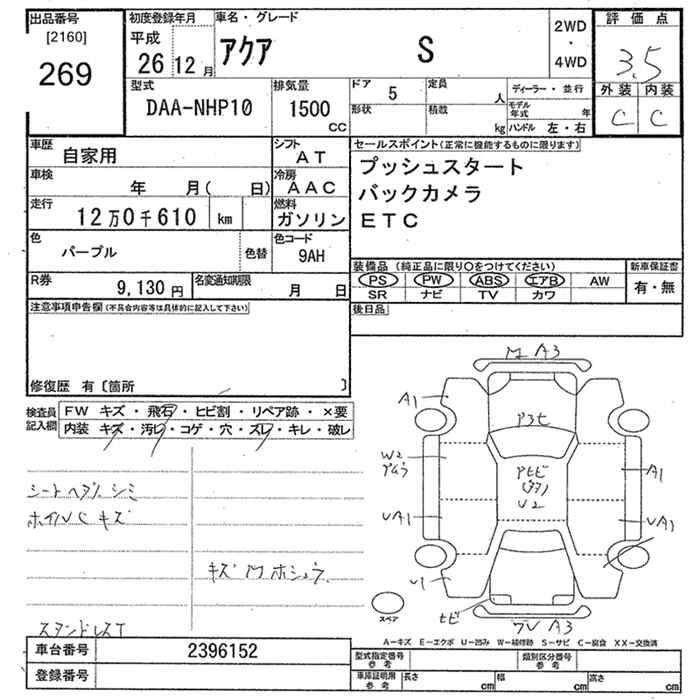 出品番号 初度登録年月 車名・グレード 2WD・4WD 評価点
[2160] 平成 アクア S 3.5
269 26 12月 外装 内装
C C
型式 排気量 ドア 5 定員 人 ディーラー・並行
DAA-NHP10 1500 cc 形状 積載 kg モデル年式 年
ハンドル 左・右
車歴 自家用 シフト AT セールスポイント(正常に機能するものに限ります)
車検 年 月( 日) 冷房 AAC プッシュスタート
走行 12万0千610 km 燃料 ガソリン バックカメラ
色 パープル 色替 色コード 9AH ETC
R券 9,130円 名変通知期限 月 日
装備品(純正品に限り○をつけてください) 新車保証書
PS PW ABS エアB AW 有・無
SR ナビ TV カワ
注意事項申告欄(不具合内容等は具体的に記入して下さい) 後日品
修復歴 有〔箇所 〕
検査員記入欄 FW キズ・飛石・ヒビ割・リペア跡・×要
内装 キズ・汚レ・コゲ・穴・ズレ・キレ・破レ
M A3
A1
P3セ
W2
A1
U2
UA1
UA1
シートヘタリ シミ
ホイルC キズ
ヒビ
A3
スペア
A-キズ E-エクボ U-凹み W-補修跡 S-サビ C-腐食 XX-交換済
車台番号 2396152 型式指定番号 参考 類別区分番号 参考
登録番号 車庫証明用 参考 長さ cm 幅 cm 高さ cm